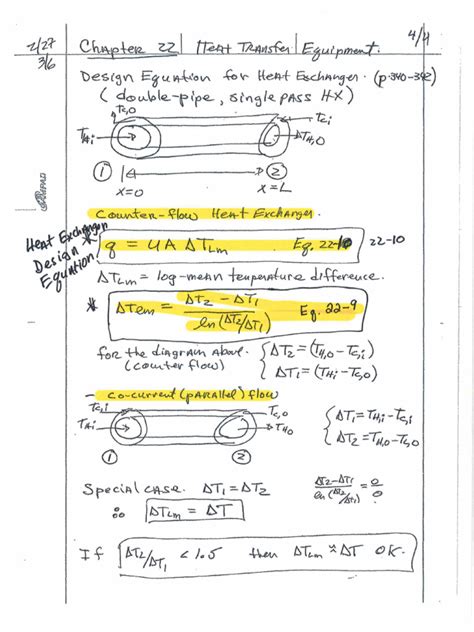 2/27
3/6
Chapter 22 | Heat Transfer Equipment.
4/4
Design Equation for Heat Exchanger. (p.340-342)
(double-pipe, single pass HX)
Tc,o
Tc,i
TH,i
TH,o
① ②
x=0 x=L
Counter-flow Heat Exchanger.
Heat Exchanger
Design
Equation
q = UA ΔTLm Eq. 22-10
22-10
ΔTLm = log-mean temperature difference.
ΔTem = ΔT2 - ΔT1 / ln(ΔT2/ΔT1) Eq. 22-9
for the diagram above.
(counter flow)
ΔT2 = (TH,o - Tc,i)
ΔT1 = (TH,i - Tc,o)
- co-current (parallel) flow
Tc,i
Tc,o
THi
THo
① ②
ΔT1 = TH,i - Tc,i
ΔT2 = TH,o - Tc,o
Special case. ΔT1 = ΔT2
ΔT2-ΔT1 / ln(ΔT2/ΔT1) = 0/0
∴ ΔTLm = ΔT
If ΔT2/ΔT1 < 1.5 then ΔTLm ≈ ΔT OK.